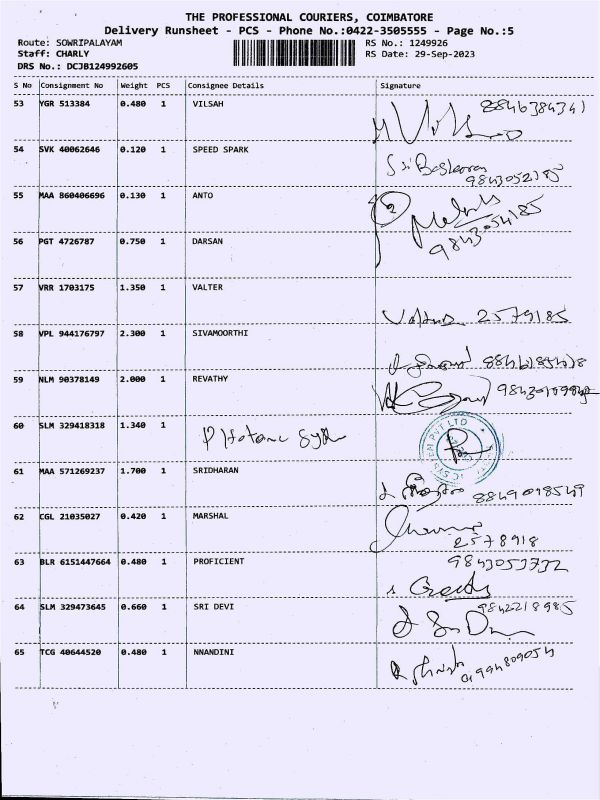 THE PROFESSIONAL COURIERS, COIMBATORE
Delivery Runsheet - PCS - Phone No.:0422-3505555 - Page No.:5
Route: SOWRIPALAYAM RS No.: 1249926
Staff: CHARLY RS Date: 29-Sep-2023
DRS No.: DCJB124992605
S No Consignment No Weight PCS Consignee Details Signature
53 YGR 513384 0.480 1 VILSAH 8846384341
54 SVK 40062646 0.120 1 SPEED SPARK Sri Baskaran
9843052185
55 MAA 860406696 0.130 1 ANTO 2
9843054185
56 PGT 4726787 0.750 1 DARSAN
57 VRR 1703175 1.350 1 VALTER 2579185
58 VPL 944176797 2.300 1 SIVAMOORTHI
59 NLM 90378149 2.000 1 REVATHY
60 SLM 329418318 1.340 1
61 MAA 571269237 1.700 1 SRIDHARAN 8849018549
62 CGL 21035027 0.420 1 MARSHAL
2578918
63 BLR 6151447664 0.480 1 PROFICIENT 9843053732
64 SLM 329473645 0.660 1 SRI DEVI 9842218985
65 TCG 40644520 0.480 1 NNANDINI